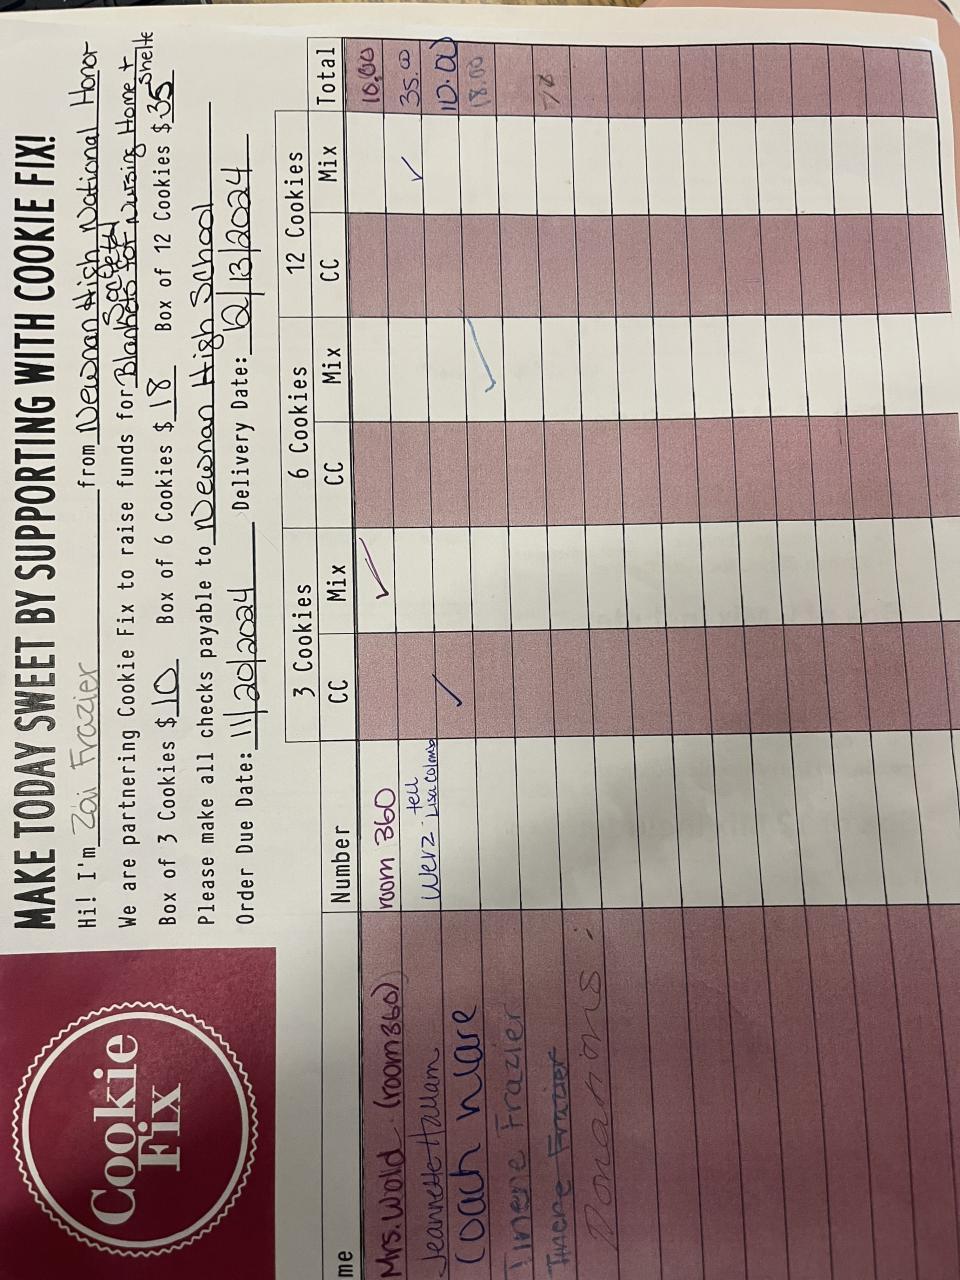 Cookie
Fix
MAKE TODAY SWEET BY SUPPORTING WITH COOKIE FIX!
Hi! I'm Zai Frazier from Newnan High National Honor
Society
We are partnering Cookie Fix to raise funds for Blankets for Nursing Home + Shelte
Box of 3 Cookies $ 10 Box of 6 Cookies $ 18 Box of 12 Cookies $ 35
Please make all checks payable to Newnan High School
Order Due Date: 11/20/2024 Delivery Date: 12/13/2024
3 Cookies 6 Cookies 12 Cookies
me Number CC Mix CC Mix CC Mix Total
Mrs. Wold (room 360) room 360 ✓ 10.00
Jeannette Hallam Werz - tell Lisa Colomb ✓ 35.00
Coach ✓ 10.00
Tinene Frazier ✓ 18.00
Tinene Frazier
Donations: